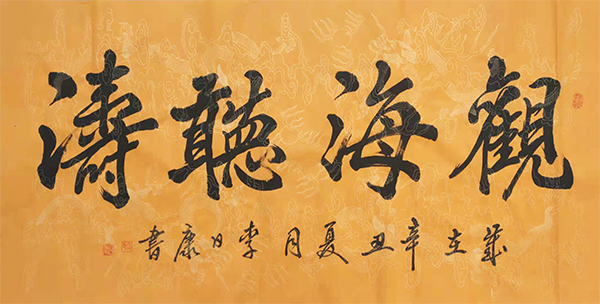 觀海聽濤
歲在辛丑夏月李日康書